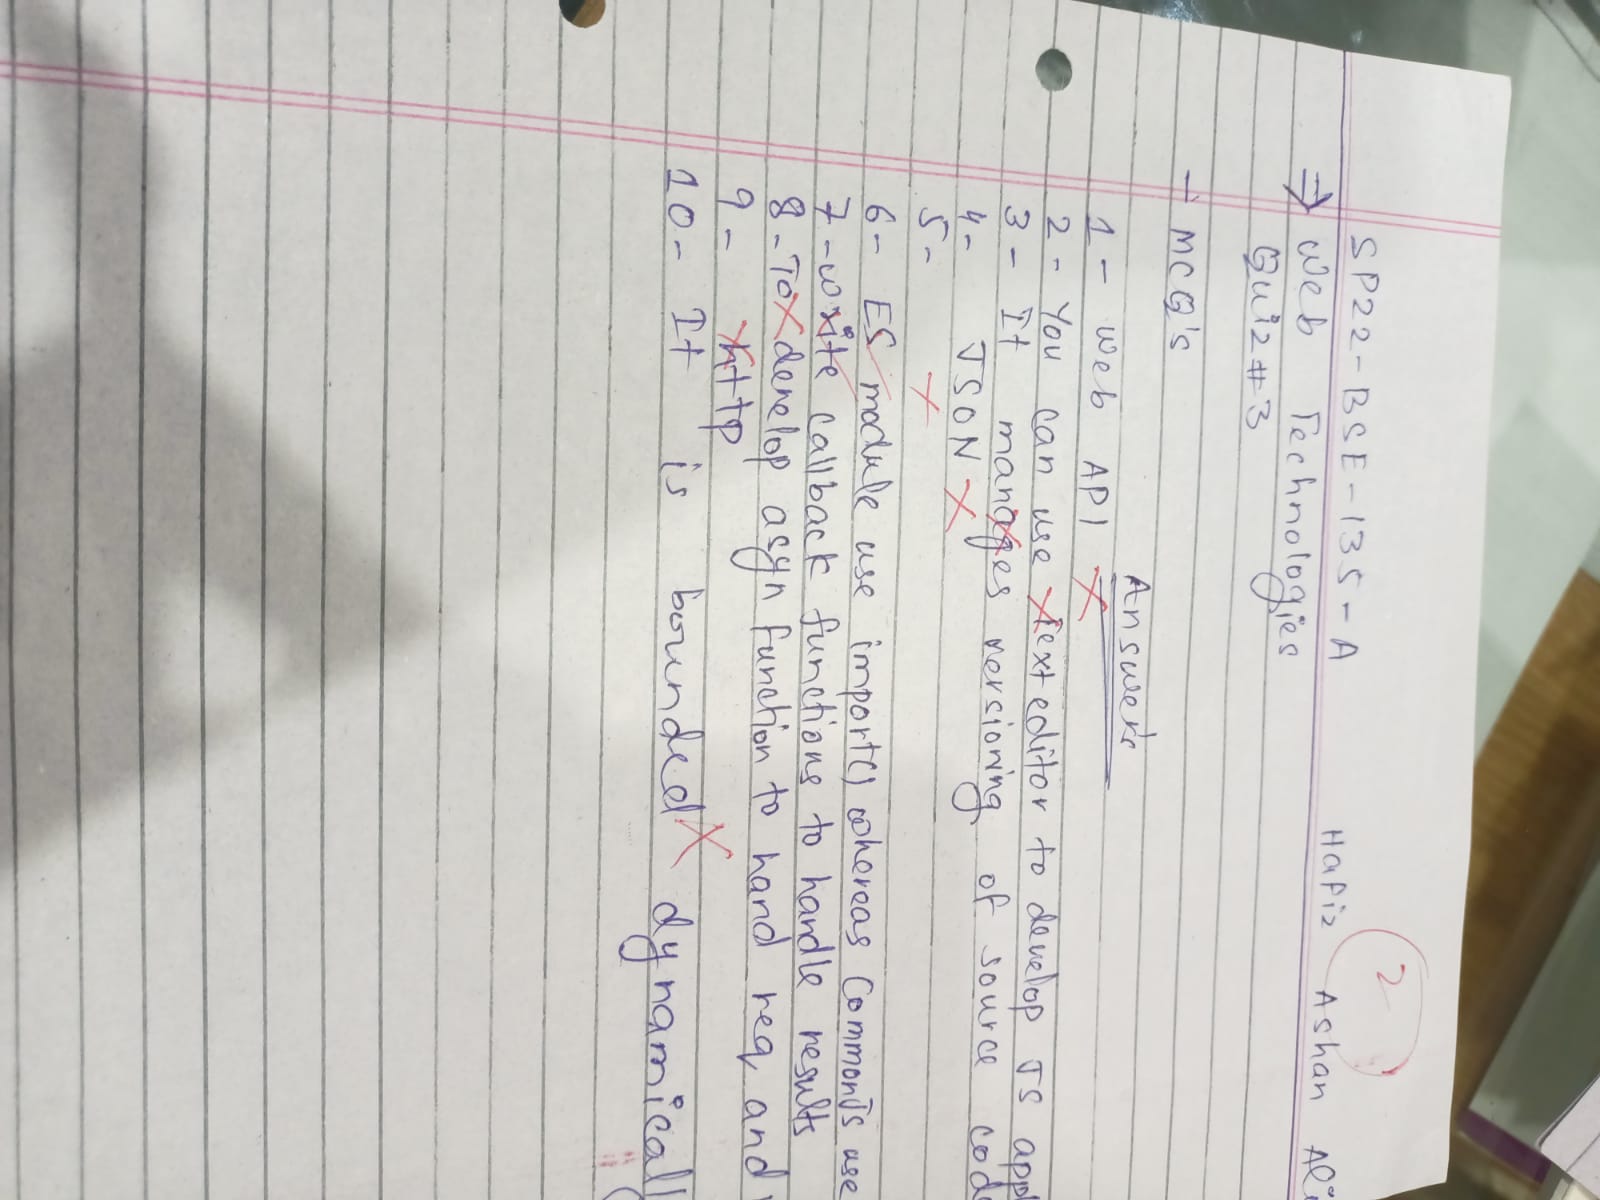 2
SP22-BSE-135-A Hafiz Ashan Ali
⇒ Web Technologies
Quiz #3
- MCQ's
Answers
1- Web API
2- You can use text editor to develop JS appl
3- It manages versioning of source cod
4- JSON
5-
6- ES module use import() whereas CommonJs use
7- write callback functions to handle results
8- To develop asyn function to hand req and
9- http
10- It is bounded dynamicall